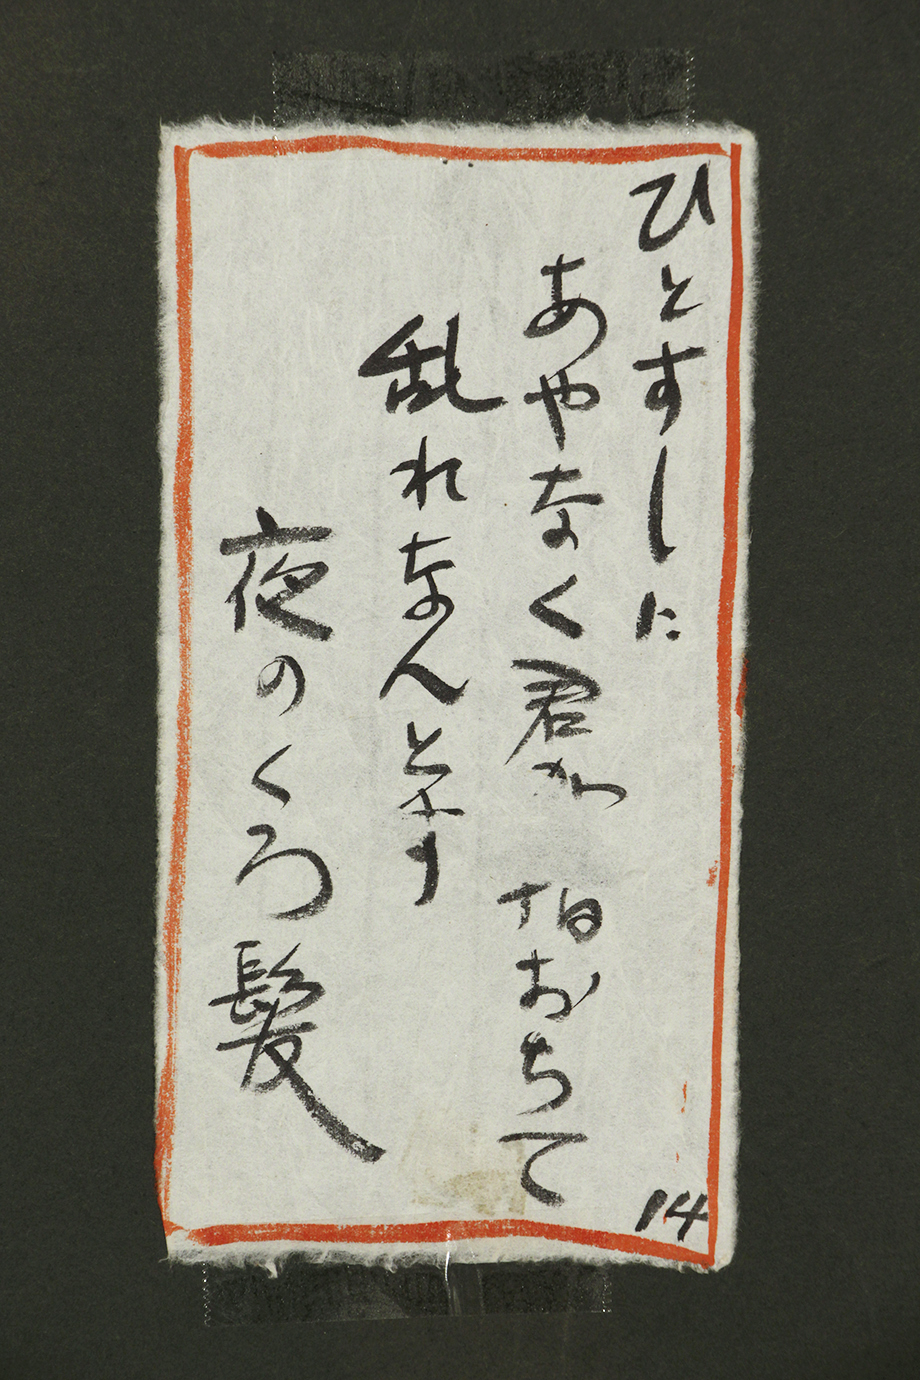 ひとすしに
あやなく君か 指おちて
乱れなんとす
夜のくろ髪
14